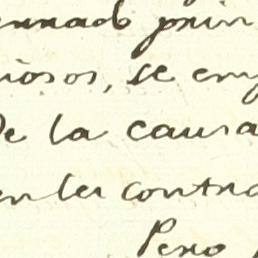 prin
iosos, se em
de la causa
en las contra
Pero